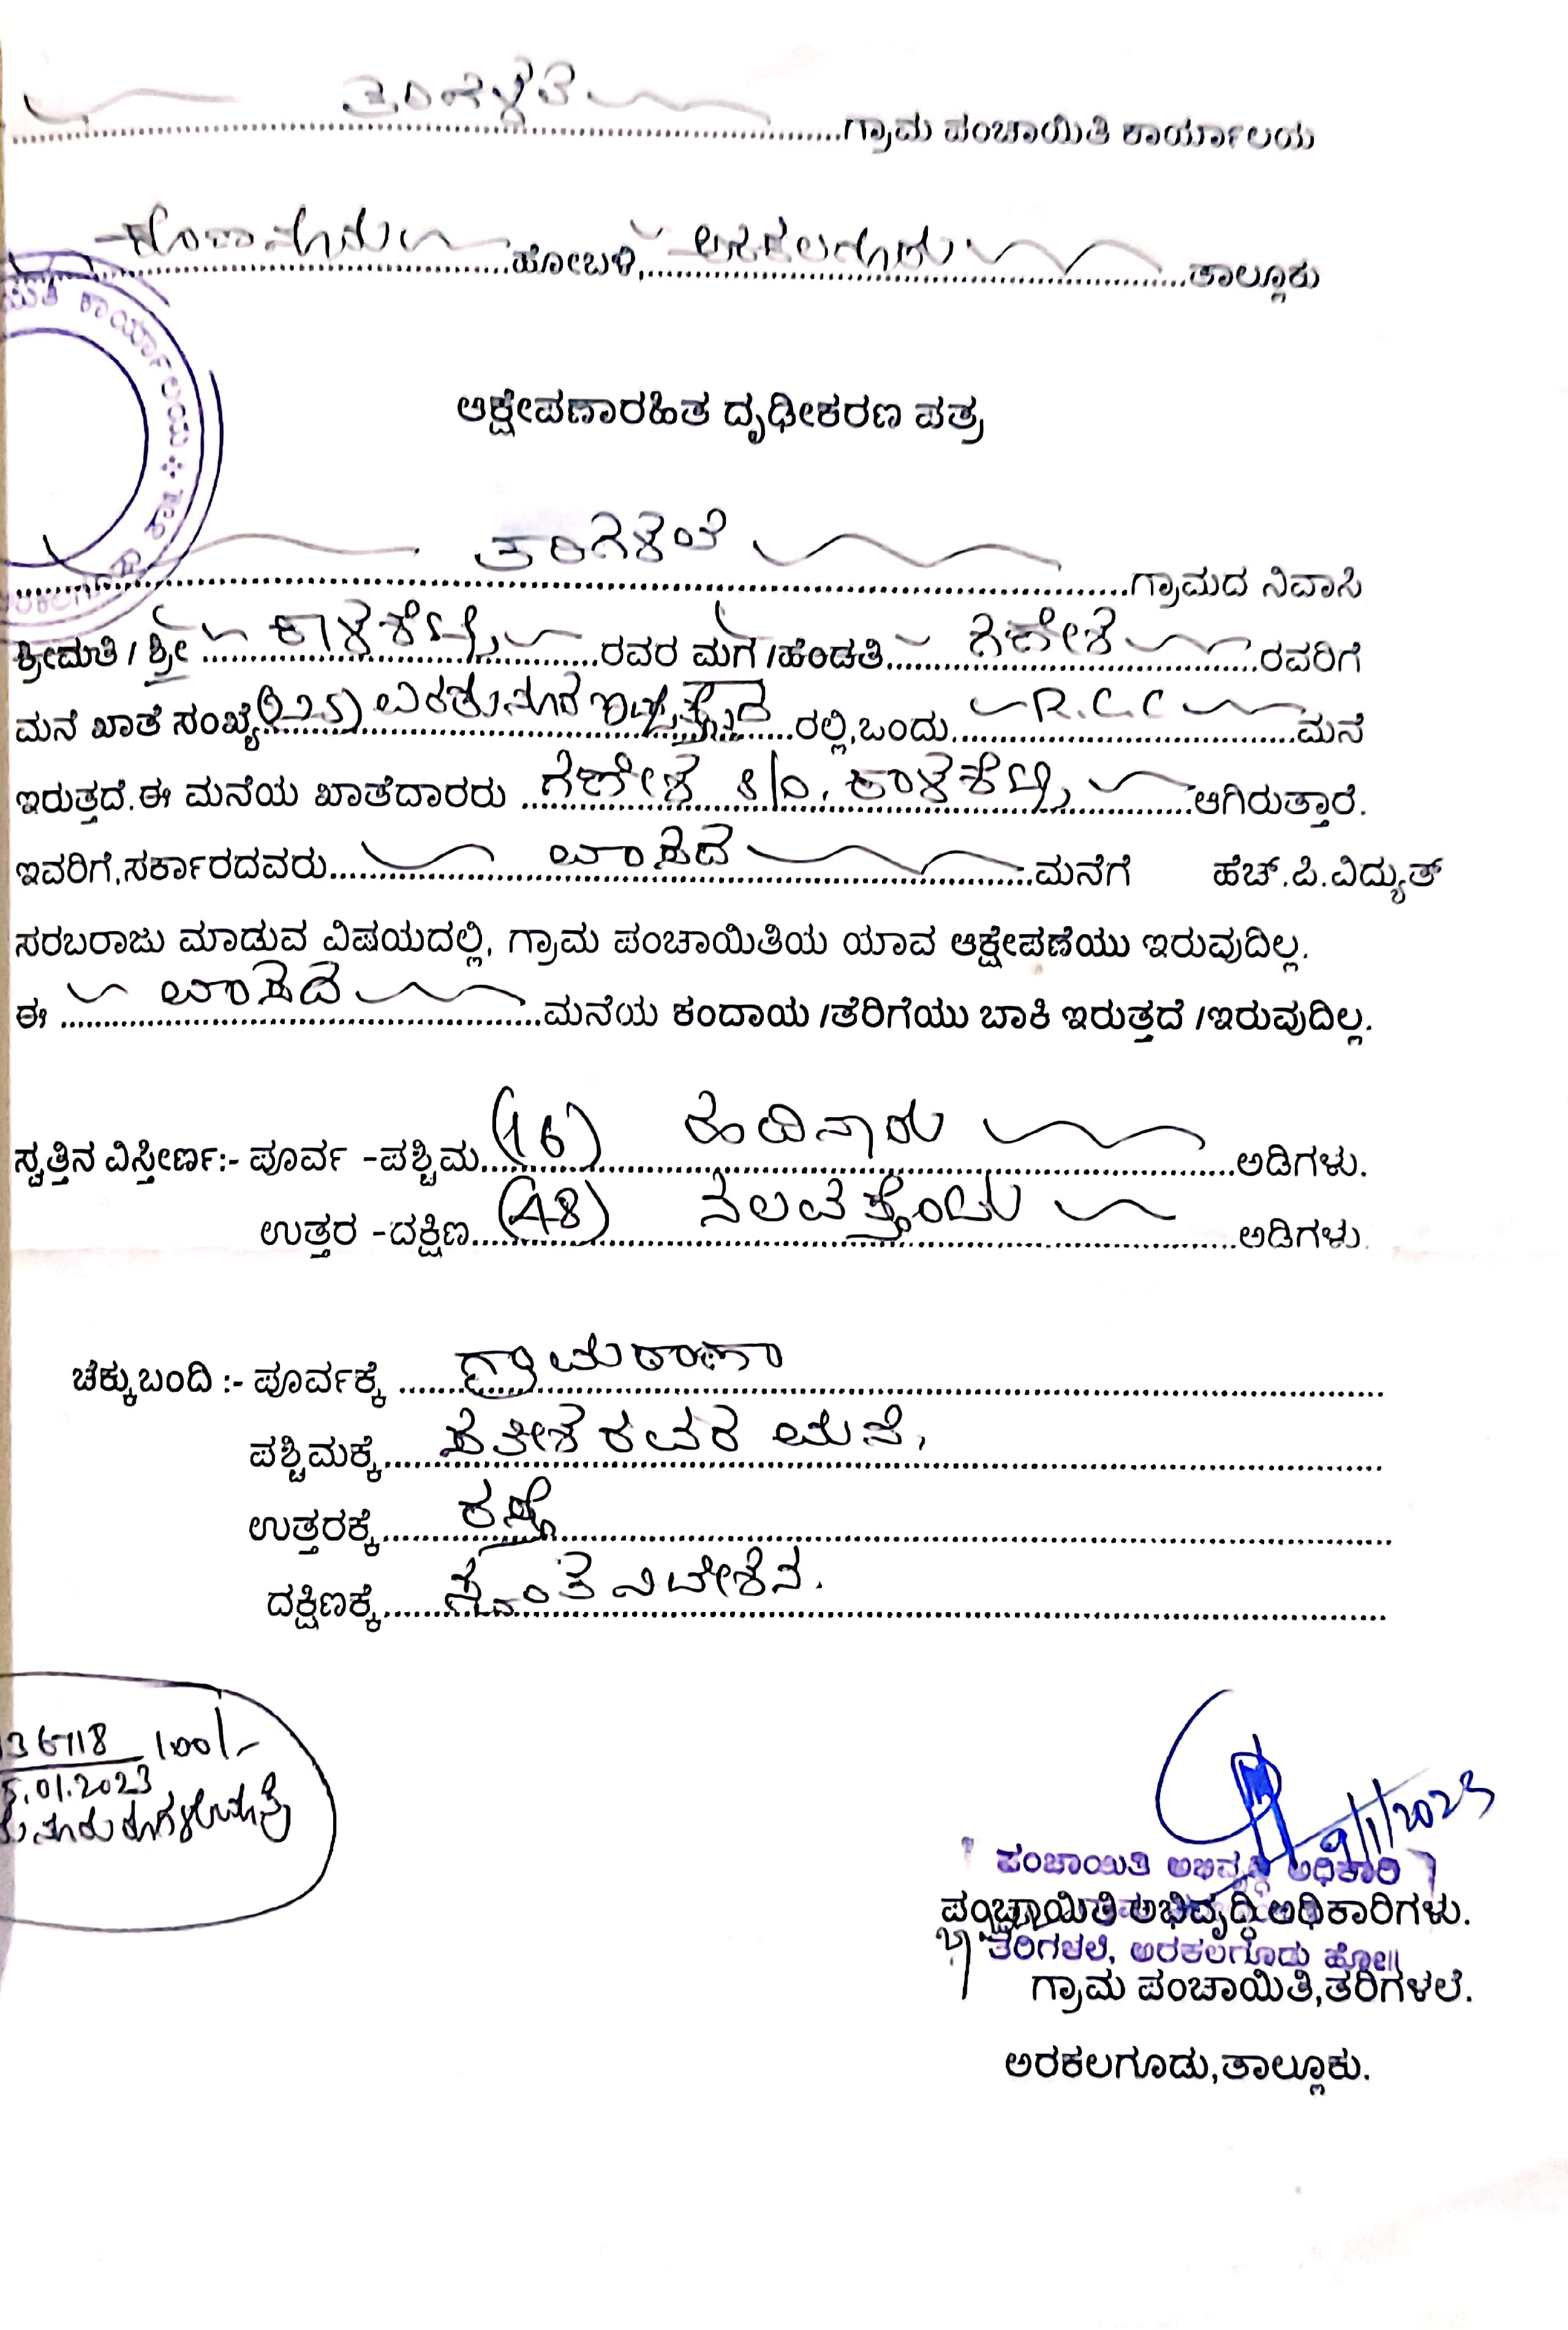 ತರಿಗಳಲೆ ಗ್ರಾಮ ಪಂಚಾಯಿತಿ ಕಾರ್ಯಾಲಯ
ಹೋಬಳಿ, ಅರಕಲಗೂಡು ತಾಲ್ಲೂಕು
ಕಾರ್ಯಾಲಯ
ಆಕ್ಷೇಪಣಾರಹಿತ ದೃಢೀಕರಣ ಪತ್ರ
ತರಿಗಳಲೆ ಗ್ರಾಮದ ನಿವಾಸಿ
ಶ್ರೀಮತಿ / ಶ್ರೀ ಕಾಳಶೆಟ್ಟಿ ರವರ ಮಗ /ಹೆಂಡತಿ ಗಣೇಶ ರವರಿಗೆ
ಮನೆ ಖಾತೆ ಸಂಖ್ಯೆ (225) ಎರಡುನೂರ ಇಪ್ಪತ್ತೈದ ರಲ್ಲಿ,ಒಂದು R.C.C ಮನೆ
ಇರುತ್ತದೆ.ಈ ಮನೆಯ ಖಾತೆದಾರರು ಗಣೇಶ s/o. ಕಾಳಶೆಟ್ಟಿ ಆಗಿರುತ್ತಾರೆ.
ಇವರಿಗೆ,ಸರ್ಕಾರದವರು ವಾಸದ ಮನೆಗೆ ಹೆಚ್.ಪಿ.ವಿದ್ಯುತ್
ಸರಬರಾಜು ಮಾಡುವ ವಿಷಯದಲ್ಲಿ, ಗ್ರಾಮ ಪಂಚಾಯಿತಿಯ ಯಾವ ಆಕ್ಷೇಪಣೆಯು ಇರುವುದಿಲ್ಲ.
ಈ ವಾಸದ ಮನೆಯ ಕಂದಾಯ /ತೆರಿಗೆಯು ಬಾಕಿ ಇರುತ್ತದೆ /ಇರುವುದಿಲ್ಲ.
ಸ್ವತ್ತಿನ ವಿಸ್ತೀರ್ಣ:- ಪೂರ್ವ -ಪಶ್ಚಿಮ (16) ಹದಿನಾರು ಅಡಿಗಳು.
ಉತ್ತರ -ದಕ್ಷಿಣ (48) ನಲವತ್ತೆಂಟು ಅಡಿಗಳು.
ಚೆಕ್ಕುಬಂದಿ :- ಪೂರ್ವಕ್ಕೆ ಗ್ರಾಮಠಾಣಾ
ಪಶ್ಚಿಮಕ್ಕೆ ಸತೀಶ ರವರ ಮನೆ,
ಉತ್ತರಕ್ಕೆ ರಸ್ತೆ
ದಕ್ಷಿಣಕ್ಕೆ ಸ್ವಂತ ನಿವೇಶನ.
36718 100/-
5.01.2023
9/1/2023
ಪಂಚಾಯಿತಿ ಅಭಿವೃದ್ಧಿ ಅಧಿಕಾರಿ
ಪಂಚಾಯಿತಿ ಅಭಿವೃದ್ಧಿ ಅಧಿಕಾರಿಗಳು.
ತರಿಗಳಲೆ, ಅರಕಲಗೂಡು ಹೋ॥
ಗ್ರಾಮ ಪಂಚಾಯಿತಿ,ತರಿಗಳಲೆ.
ಅರಕಲಗೂಡು,ತಾಲ್ಲೂಕು.